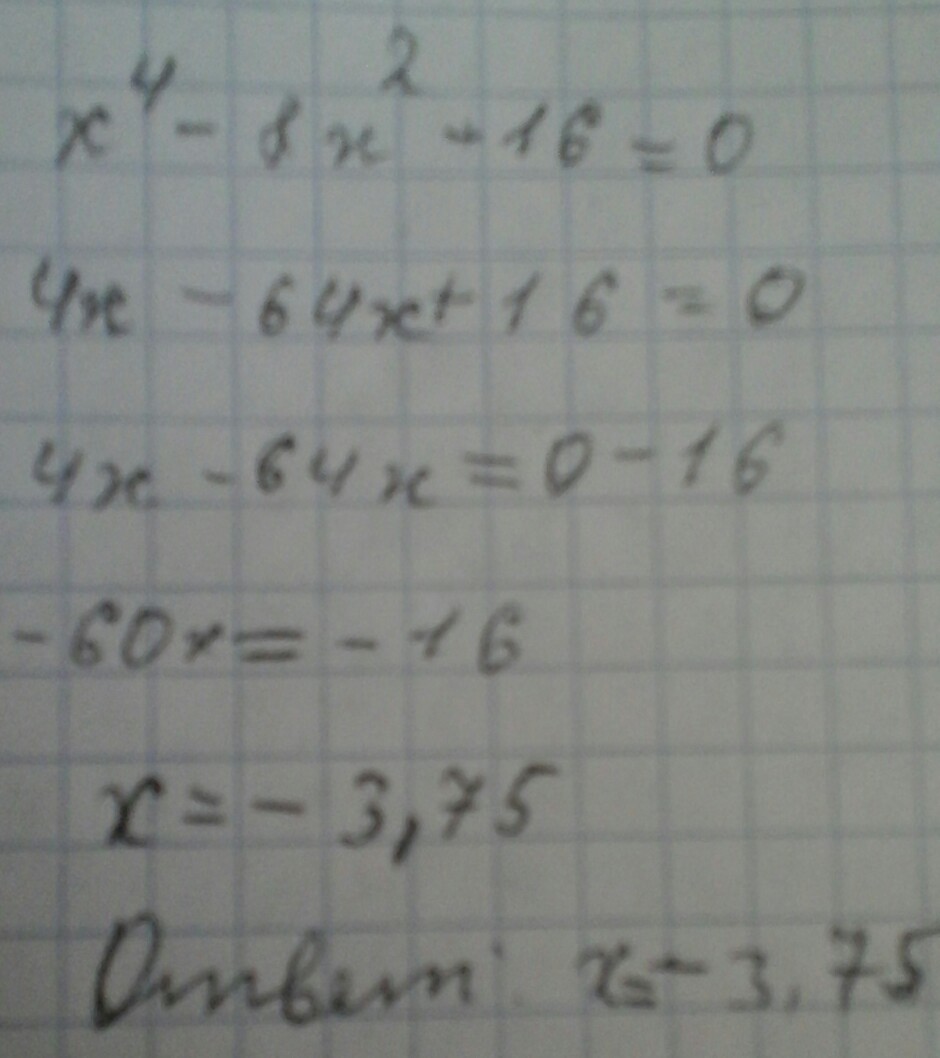 x⁴ - 8x² - 16 = 0
4x - 64x + 16 = 0
4x - 64x = 0 - 16
-60x = -16
x = - 3,75
Ответ: x = - 3,75